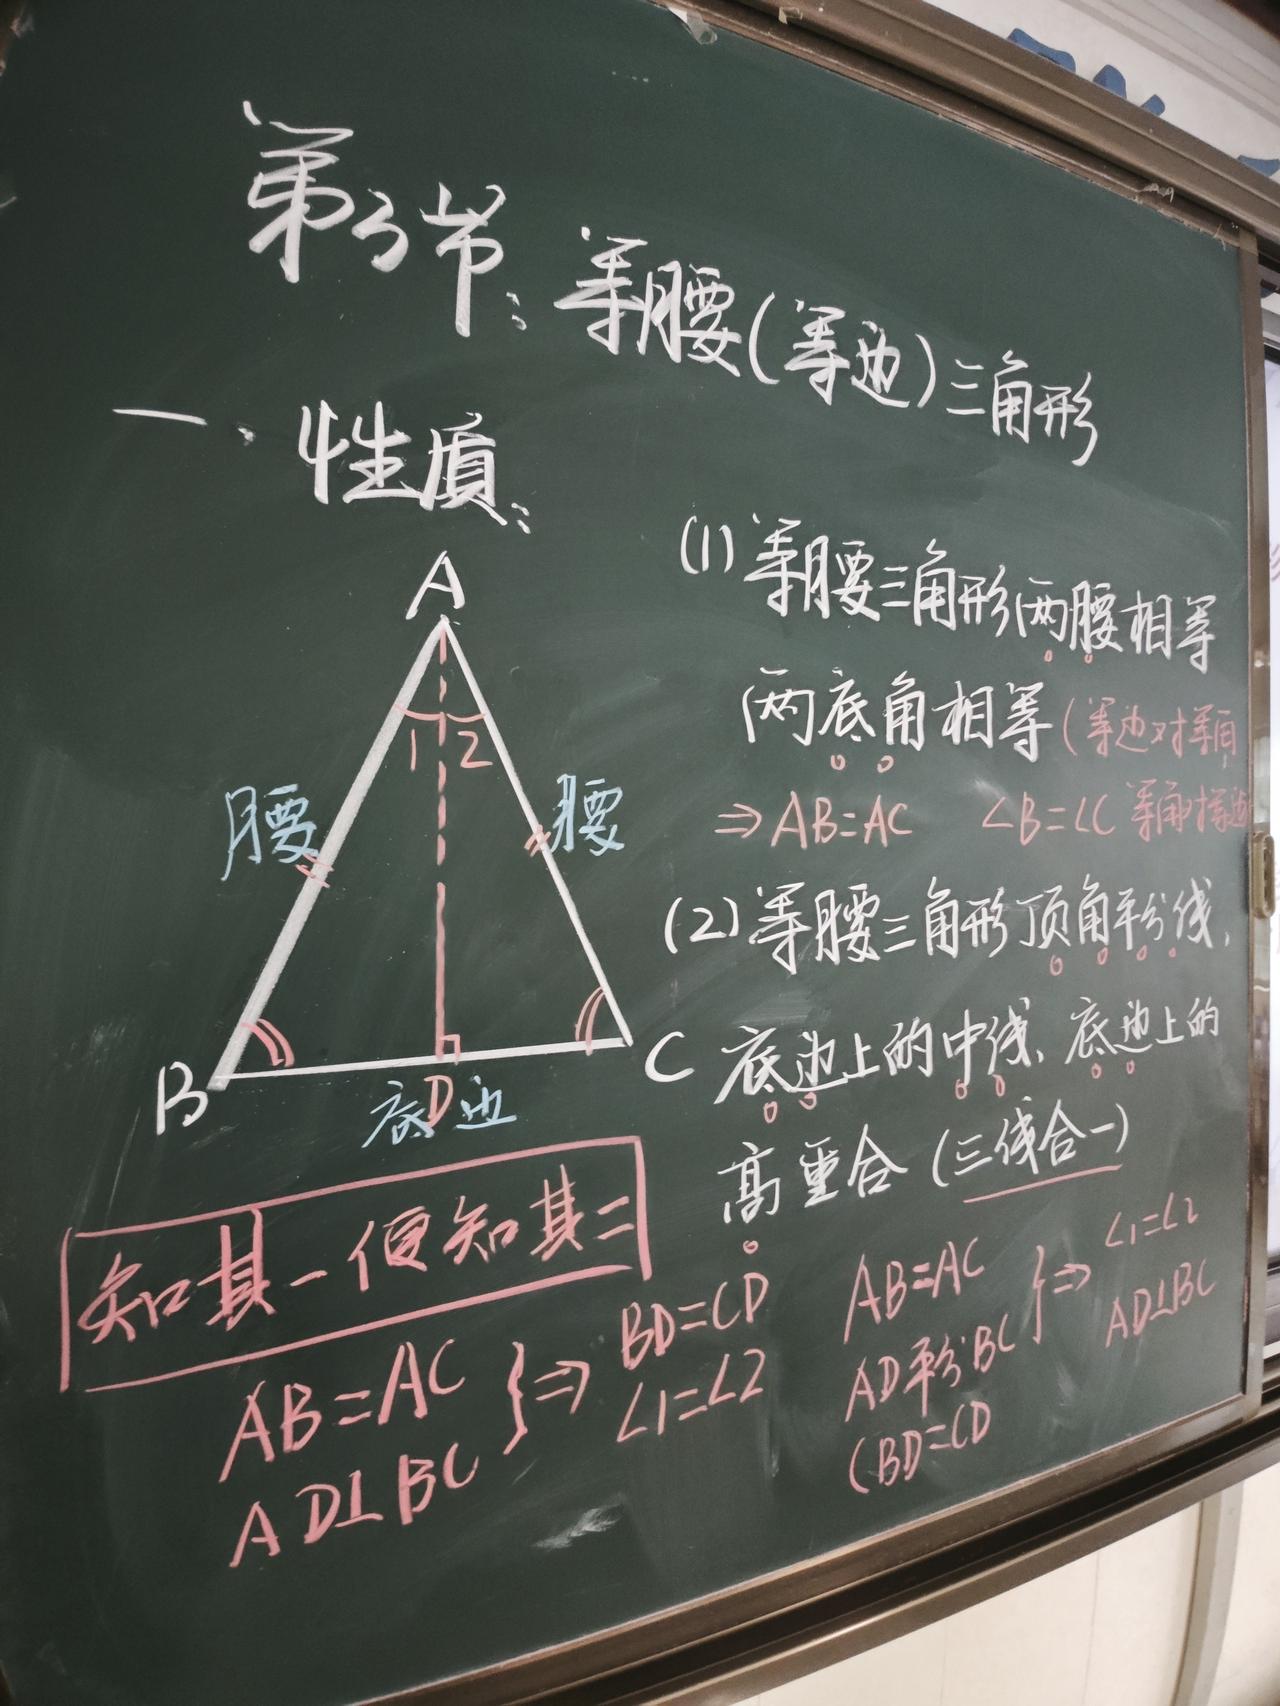 第3节：等腰(等边)三角形
一、性质：
A
1 2
腰 腰
B D C
底边
(1)等腰三角形两腰相等
两底角相等(等边对等角
⇒AB=AC ∠B=∠C 等角对等边
(2)等腰三角形顶角平分线、
底边上的中线、底边上的
高重合(三线合一)
知其一便知其二
AB=AC
AD⊥BC
}⇒
BD=CD
∠1=∠2
AB=AC
AD平分BC
(BD=CD
}⇒
∠1=∠2
AD⊥BC